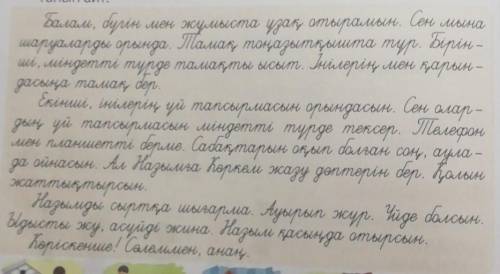 Балам, бүгін мен жұмыста ұзақ отырамын. Сен мына
шаруаларды орында. Тамақ тоңазытқышта тұр. Бірін-
ші, міндетті түрде тамақты ысыт. Інілерің мен қарын-
дасыңа тамақ бер.
Екінші, інілерің үй тапсырмасын орындасын. Сен олар-
дың үй тапсырмасын міндетті түрде тексер. Телефон
мен планшетті берме. Сабақтарын оқып болған соң, аула-
да ойнасын. Ал Назымға Көркем жазу дәптерін бер. Қолын
жаттықтырсын.
Назымды сыртқа шығарма. Ауырып жүр. Үйде болсын.
Ыдысты жу, асүйді жина. Назым қасыңда отырсын.
Көріскенше! Сәлеммен, анаң.